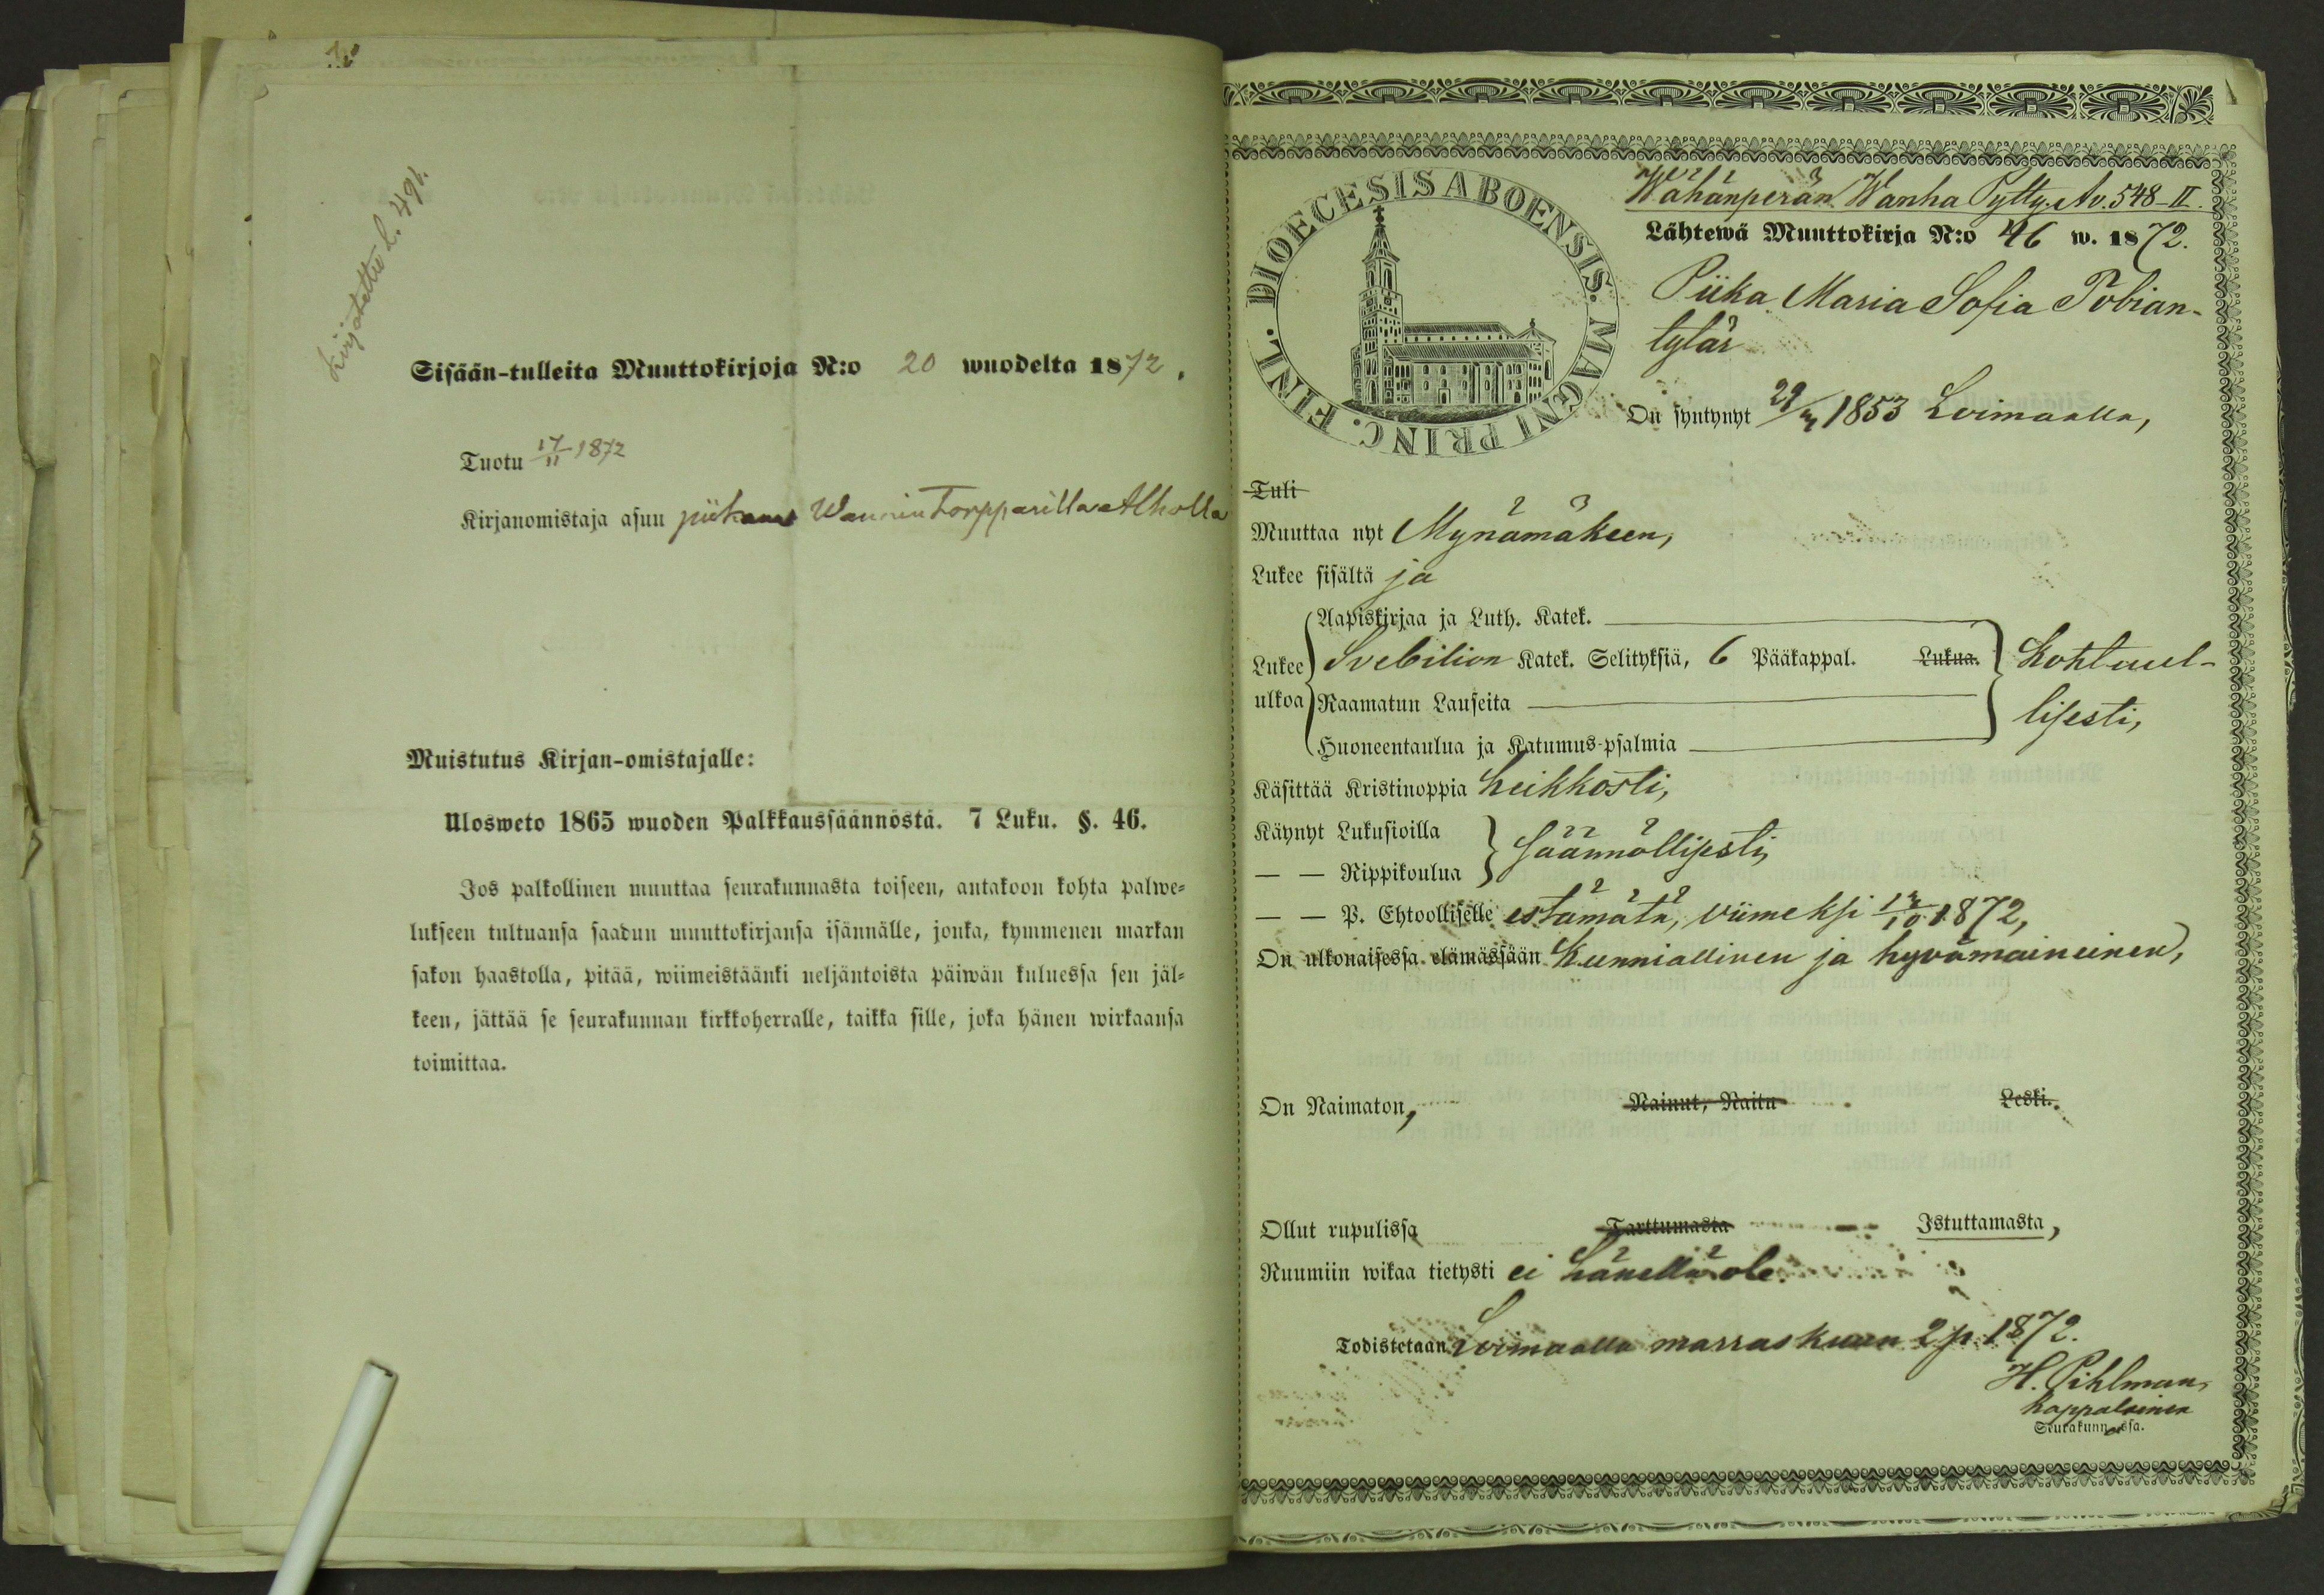 Kirjotettu l. 491.
Sisään-tulleita Muuttokirjoja N:o 20 wuodelta 1872.
Tuotu 17/11 1872
Kirjanomistaja asuu piikana Wannin Torpparilla Alholla
Muistutus Kirjan-omistajalle:
Ulosweto 1865 wuoden Palkkaussäännöstä. 7 Luku. §. 46.
Jos palkollinen muuttaa seurakunnasta toiseen, antakoon kohta palwe-
lukseen tultuansa saadun muuttokirjansa isännälle, jonka, kymmenen markan
sakon haastolla, pitää, wiimeistäänki neljäntoista päiwän kuluessa sen jäl-
keen, jättää se seurakunnan kirkkoherralle, taikka sille, joka hänen wirkaansa
toimittaa.
FINL. DIOECESIS ABOENSIS. MAGNI PRINC.
Wähänperän Wanha Pytty. Av. 548-II.
Lähtewä Muuttokirja N:o 46 w. 1872.
Piika Maria Sofia Tobian-
tytär
On syntynyt 29/3 1853 Loimaalla,
Tuli
Muuttaa nyt Mynämäkeen,
Lukee sisältä ja
Aapiskirjaa ja Luth. Katek.
Lukee ulkoa Svebilion Katek. Selityksiä, 6 Pääkappal. Lukua. kohtuul-
Raamatun Lauseita lisesti,
Huoneentaulua ja Katumus-psalmia
Käsittää Kristinoppia heikkosti,
Käynyt Lukusioilla
— — Rippikoulua säännöllisesti,
— — P. Ehtoolliselle estämätä, viimeksi 13/10 1872,
On ulkonaisessa elämässään kunniallinen ja hyvämaineinen,
On Naimaton, Nainut, Naitu Leski.
Ollut rupulissa Tarttumasta Istuttamasta,
Ruumiin wikaa tietysti ei hänellä ole.
Todistetaan Loimaalla marraskuun 2 p. 1872.
H. Pihlman,
kappalainen
Seurakunnassa.